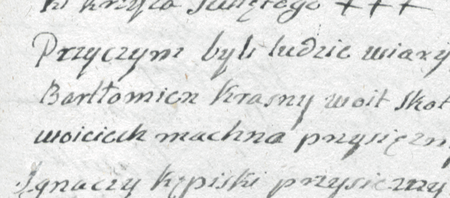 krzyża Świętego +++
Przyczym byli ludzie wiary
Bartłomien Krasny woit Skot
woicieck machna przysięzn
Ignaczy Kępiski przysiezny